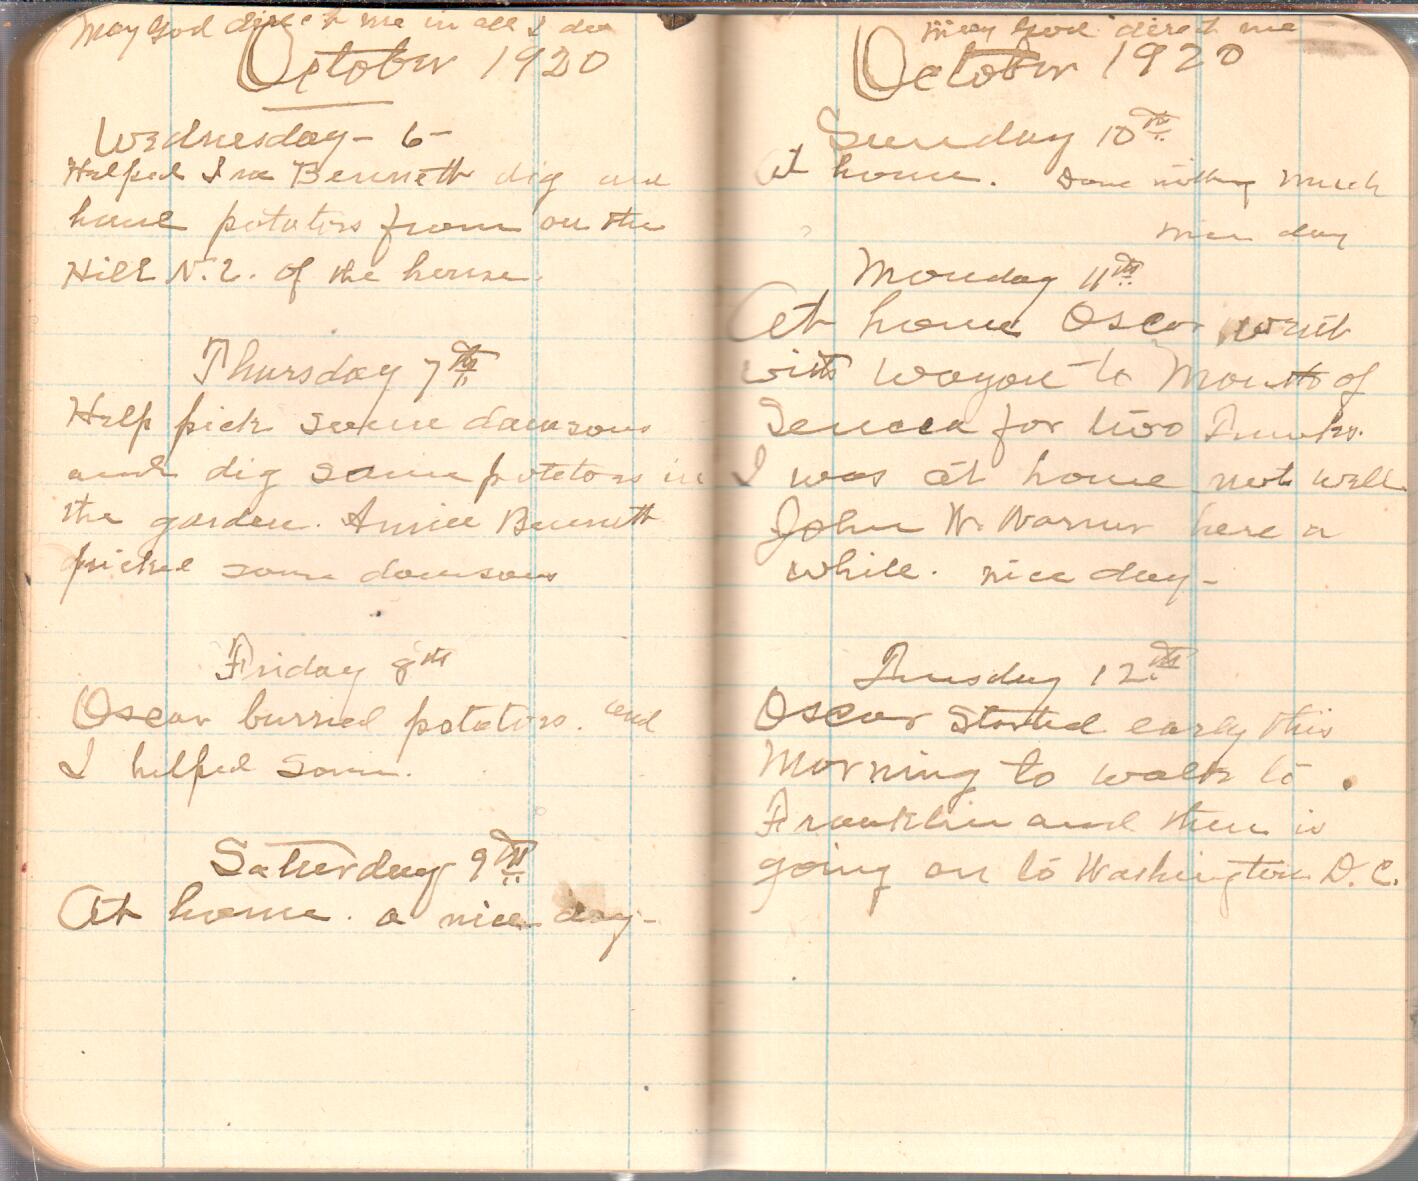 May God direct me in all I do
October 1920
Wednesday - 6 -
Helped Ira Bennett dig and
haul potatoes from on the
Hill N.E. of the house.
Thursday 7th
Help pick some damsons
and dig some potetoes in
the garden. Annie Bennett
picked some damsons
Friday 8th
Oscar burried potatoes. and
I helped some.
Saturday 9th
At home. a nice day -
may God direct me
October 1920
Sunday 10th
At home. Done nothing much
nice day
Monday 11th
At home Oscar went
with wagon to Mouth of
Seneca for two Trunks.
I was at home not well
John W. Warner here a
while. nice day -
Tuesday 12th
Oscar started early this
Morning to walk to
Franklin and then is
going on to Washington D.C.